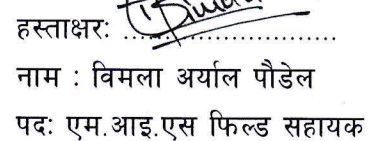 हस्ताक्षरः ..............................
नाम : विमला अर्याल पौडेल
पदः एम.आइ.एस फिल्ड सहायक